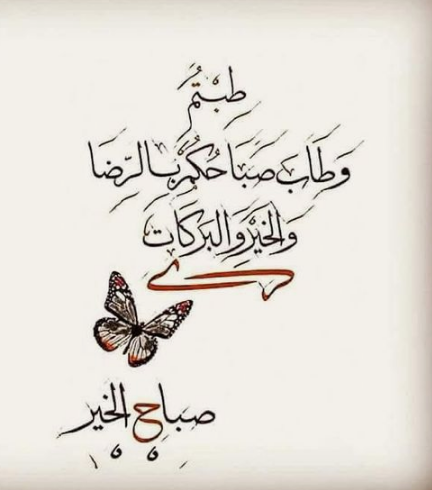 طِبْتُم
وَطَابَ صَبَاحُكُم بِالرِّضَا
وَالخَيْرِ وَالبَرَكَات
صباح الخير